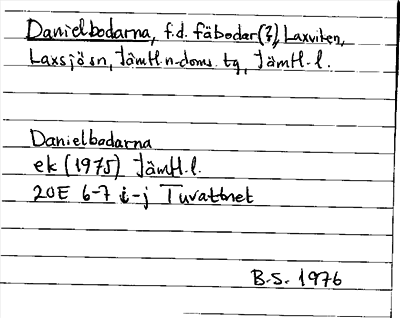 Danielbodarna, f.d. fäbodar(?), Laxviken,
Laxsjö sn, Jämtl. n. doms. tg, Jämtl. l.
Danielbodarna
ek (1975) Jämtl. l.
20E 6-7 i-j Tuvattnet
B.S. 1976